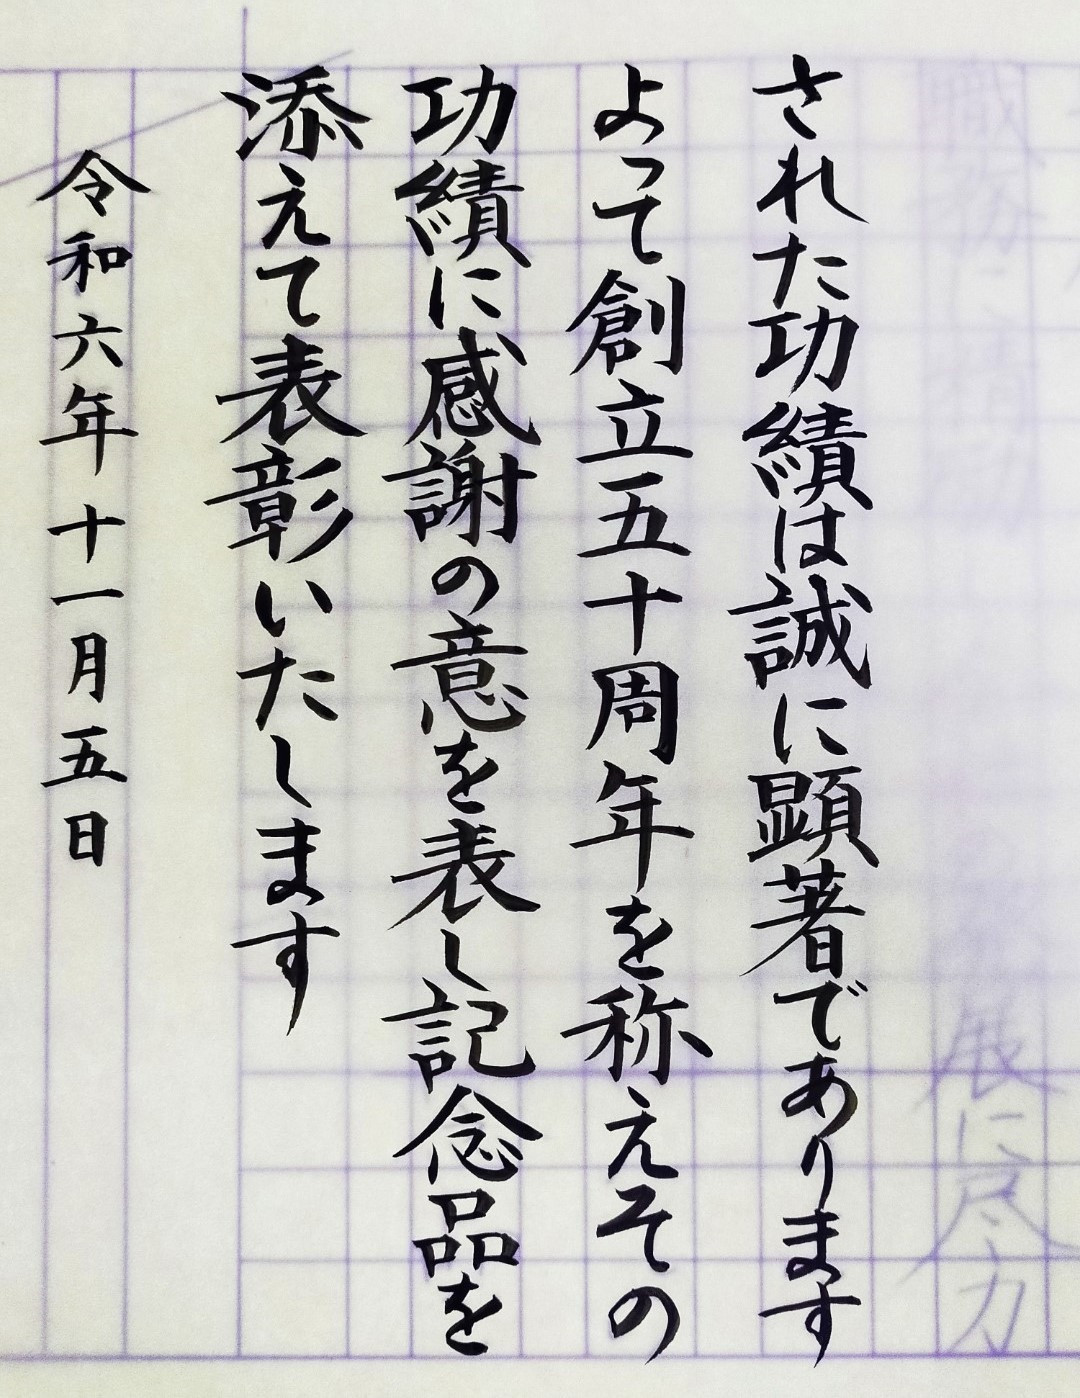 展に尽力
された功績は誠に顕著であります
よって創立五十周年を称えその
功績に感謝の意を表し記念品を
添えて表彰いたします
令和六年十一月五日